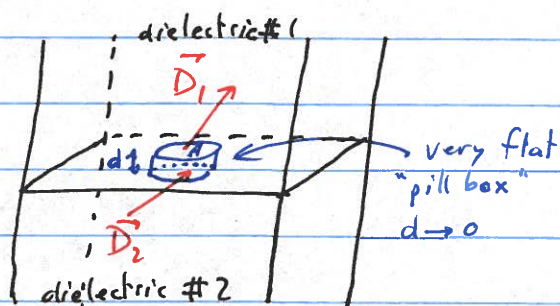 dielectric #1
D⃗₁
A
d
very flat
"pill box"
d → 0
D⃗₂
dielectric #2